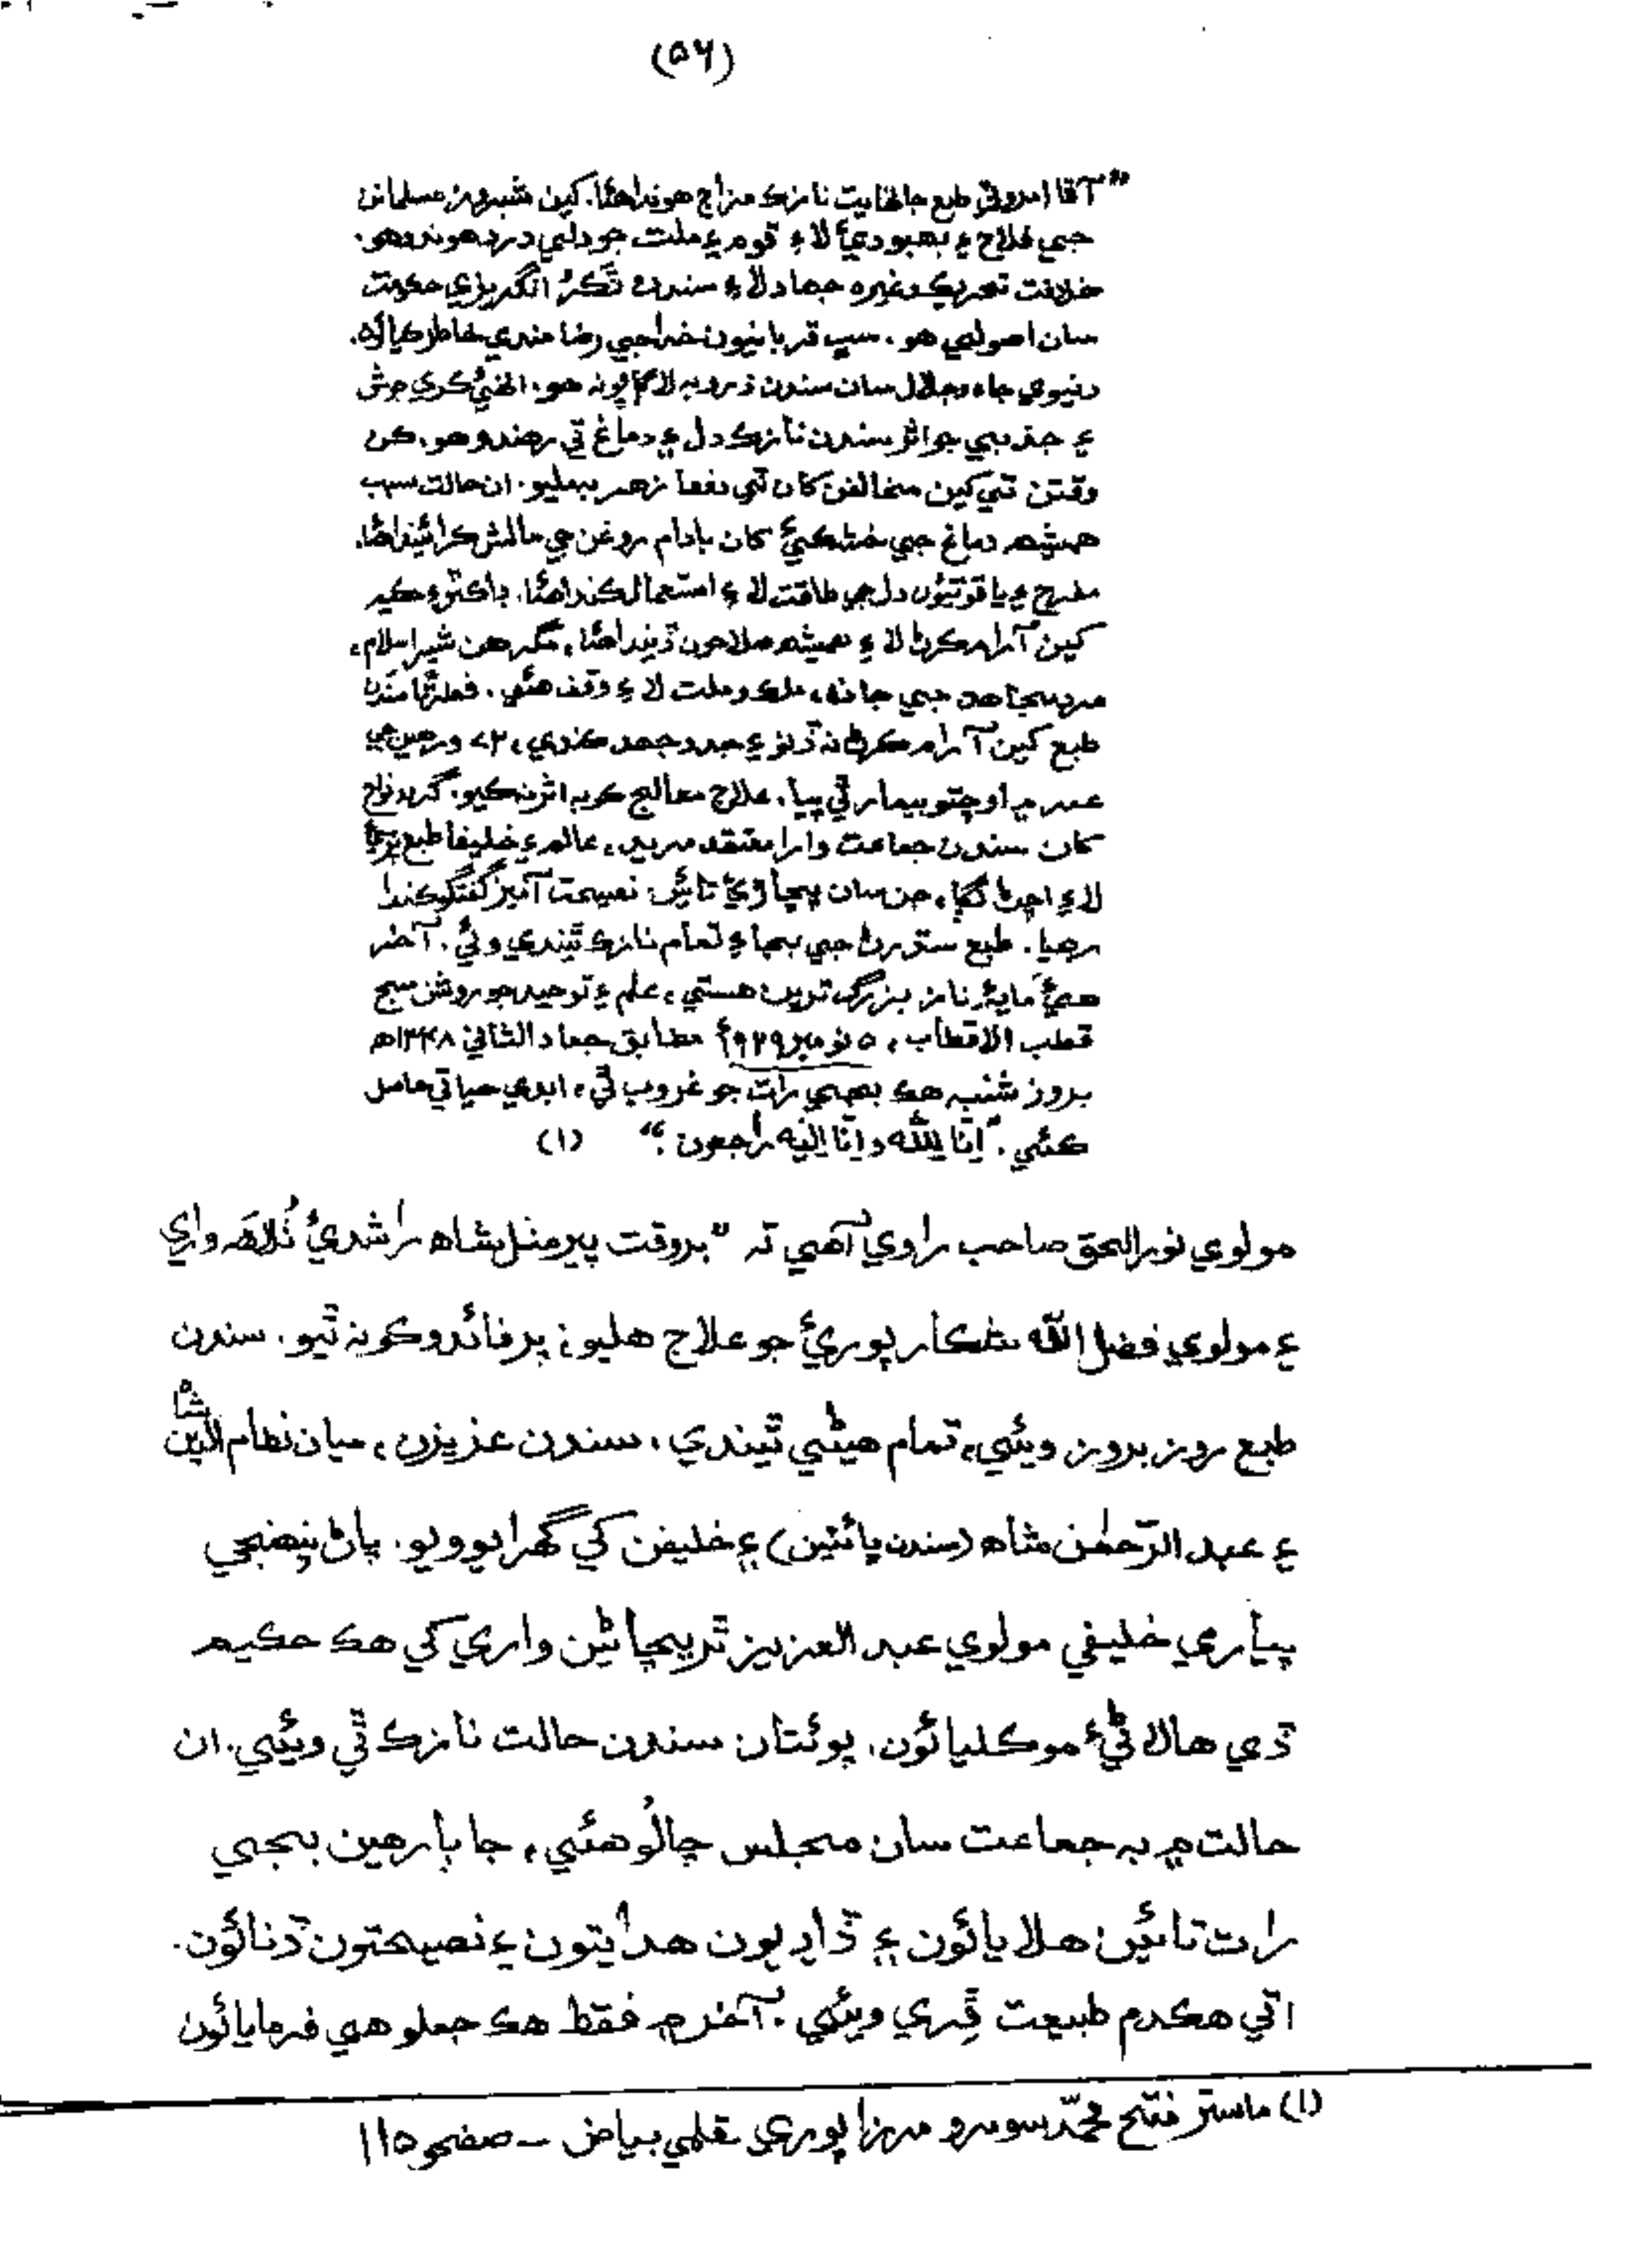 (٥٦)
”آقا امروٽي طبع جا نهايت نازڪ مزاج هوندا هئا. کين شب روز مسلمانن
جي فلاح ۽ بهبودي لاءِ قوم ۽ ملت جو دلي درد هوندو هو.
خلافت تحريڪ وغيره جهاد لاءِ سندن ٽڪر انگريزي حڪومت
سان اصولي هو. سڀ قربانيون خدا جي رضامندي خاطر ڪيائون.
دنيوي جاه و جلال سان سندن ذرو به لاڳاپو نه هو. انهيءَ ڪري جوش
۽ جذبي جو اثر سندن نازڪ دل ۽ دماغ تي رهندو هو. ڪن
وقتن تي کين مخالفن کان ٽي دفعا زهر به مليو. ان حالت سبب
هميشه دماغ جي خشڪيءَ کان بادام روغن جي مالش ڪرائيندا هئا.
مفرح ۽ ياقوتيون دل جي طاقت لاءِ استعمال ڪندا هئا. ڊاڪٽر ۽ حڪيم
کين آرام ڪرڻ لاءِ هميشه صلاحون ڏيندا هئا، مگر هن شير اسلام،
مرد مجاهد جي جان، ملڪ و ملت لاءِ وقف هئي. فطرتاً سندن
طبع کين آرام ڪرڻ نه ڏنو ۽ جدوجهد ڪندي، ٧٢ ورهين جي
عمر ۾ اوچتو بيمار ٿي پيا. علاج معالج ڪو به اثر نه ڪيو. گرد نواح
کان سندن جماعت وارا معتقد مريد، عالم ۽ خليفا طبع پرسيءَ
لاءِ اچڻ لڳا، جن سان پڇاڙيءَ تائين نصيحت آميز گفتگو ڪندا
رهيا. طبع سڌرڻ جي بجاءِ تمام نازڪ ٿيندي وئي. آخر
هيءَ مايهٔ ناز بزرگ ترين هستي، علم ۽ توحيد جو روشن سج
قطب الاقطاب، ٥ نومبر ١٩٢٩ع مطابق جماد الثاني ١٣٤٨ھ
بروز شنبه هڪ بجي رات جو غروب ٿي، ابدي حياتي حاصل
ڪئي. ”اِنّا لِلّٰه وَاِنّا اِلَيه راجعون.“ (١)
مولوي نورالحق صاحب راوي آهي ته ”بروقت پير منل شاھ راشديءَ نُلاهَه واري
۽ مولوي فضل اللّٰه شڪارپوريءَ جو علاج هليو، پر فائدو ڪونه ٿيو. سندن
طبع روز بروز ويئي، تمام هيڻي ٿيندي، سندن عزيزن، ميان نظام الدين شاھ
۽ عبد الرّحمٰن شاھ (سندن ڀائٽين) ۽ خليفن کي گهرايو ويو. پاڻ پنهنجي
پياري خليفي مولوي عبد العزيز ٿريچاڻين واري کي هڪ حڪيم
ڏي هالاڻيءَ موڪليائون. پوئتان سندن حالت نازڪ ٿي ويئي. ان
حالت ۾ به جماعت سان مجلس چالُو هئي، جا ٻارهين بجي
رات تائين هلايائون ۽ ڏاڍيون هدايتون ۽ نصيحتون ڏنائون.
اتي هڪدم طبيعت ڦِري ويئي. آخر ۾ فقط هڪ جملو هي فرمايائون
(١) ماستر فتح محمّد سومرو مرزاپوري قلمي بياض – صفحو ١١٥